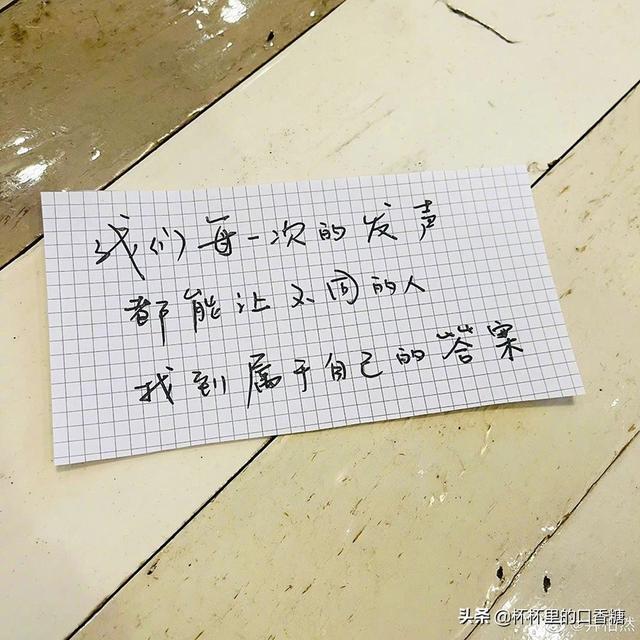 我们每一次的发声
都能让不同的人
找到属于自己的答案
头条 @杯杯里的口香糖